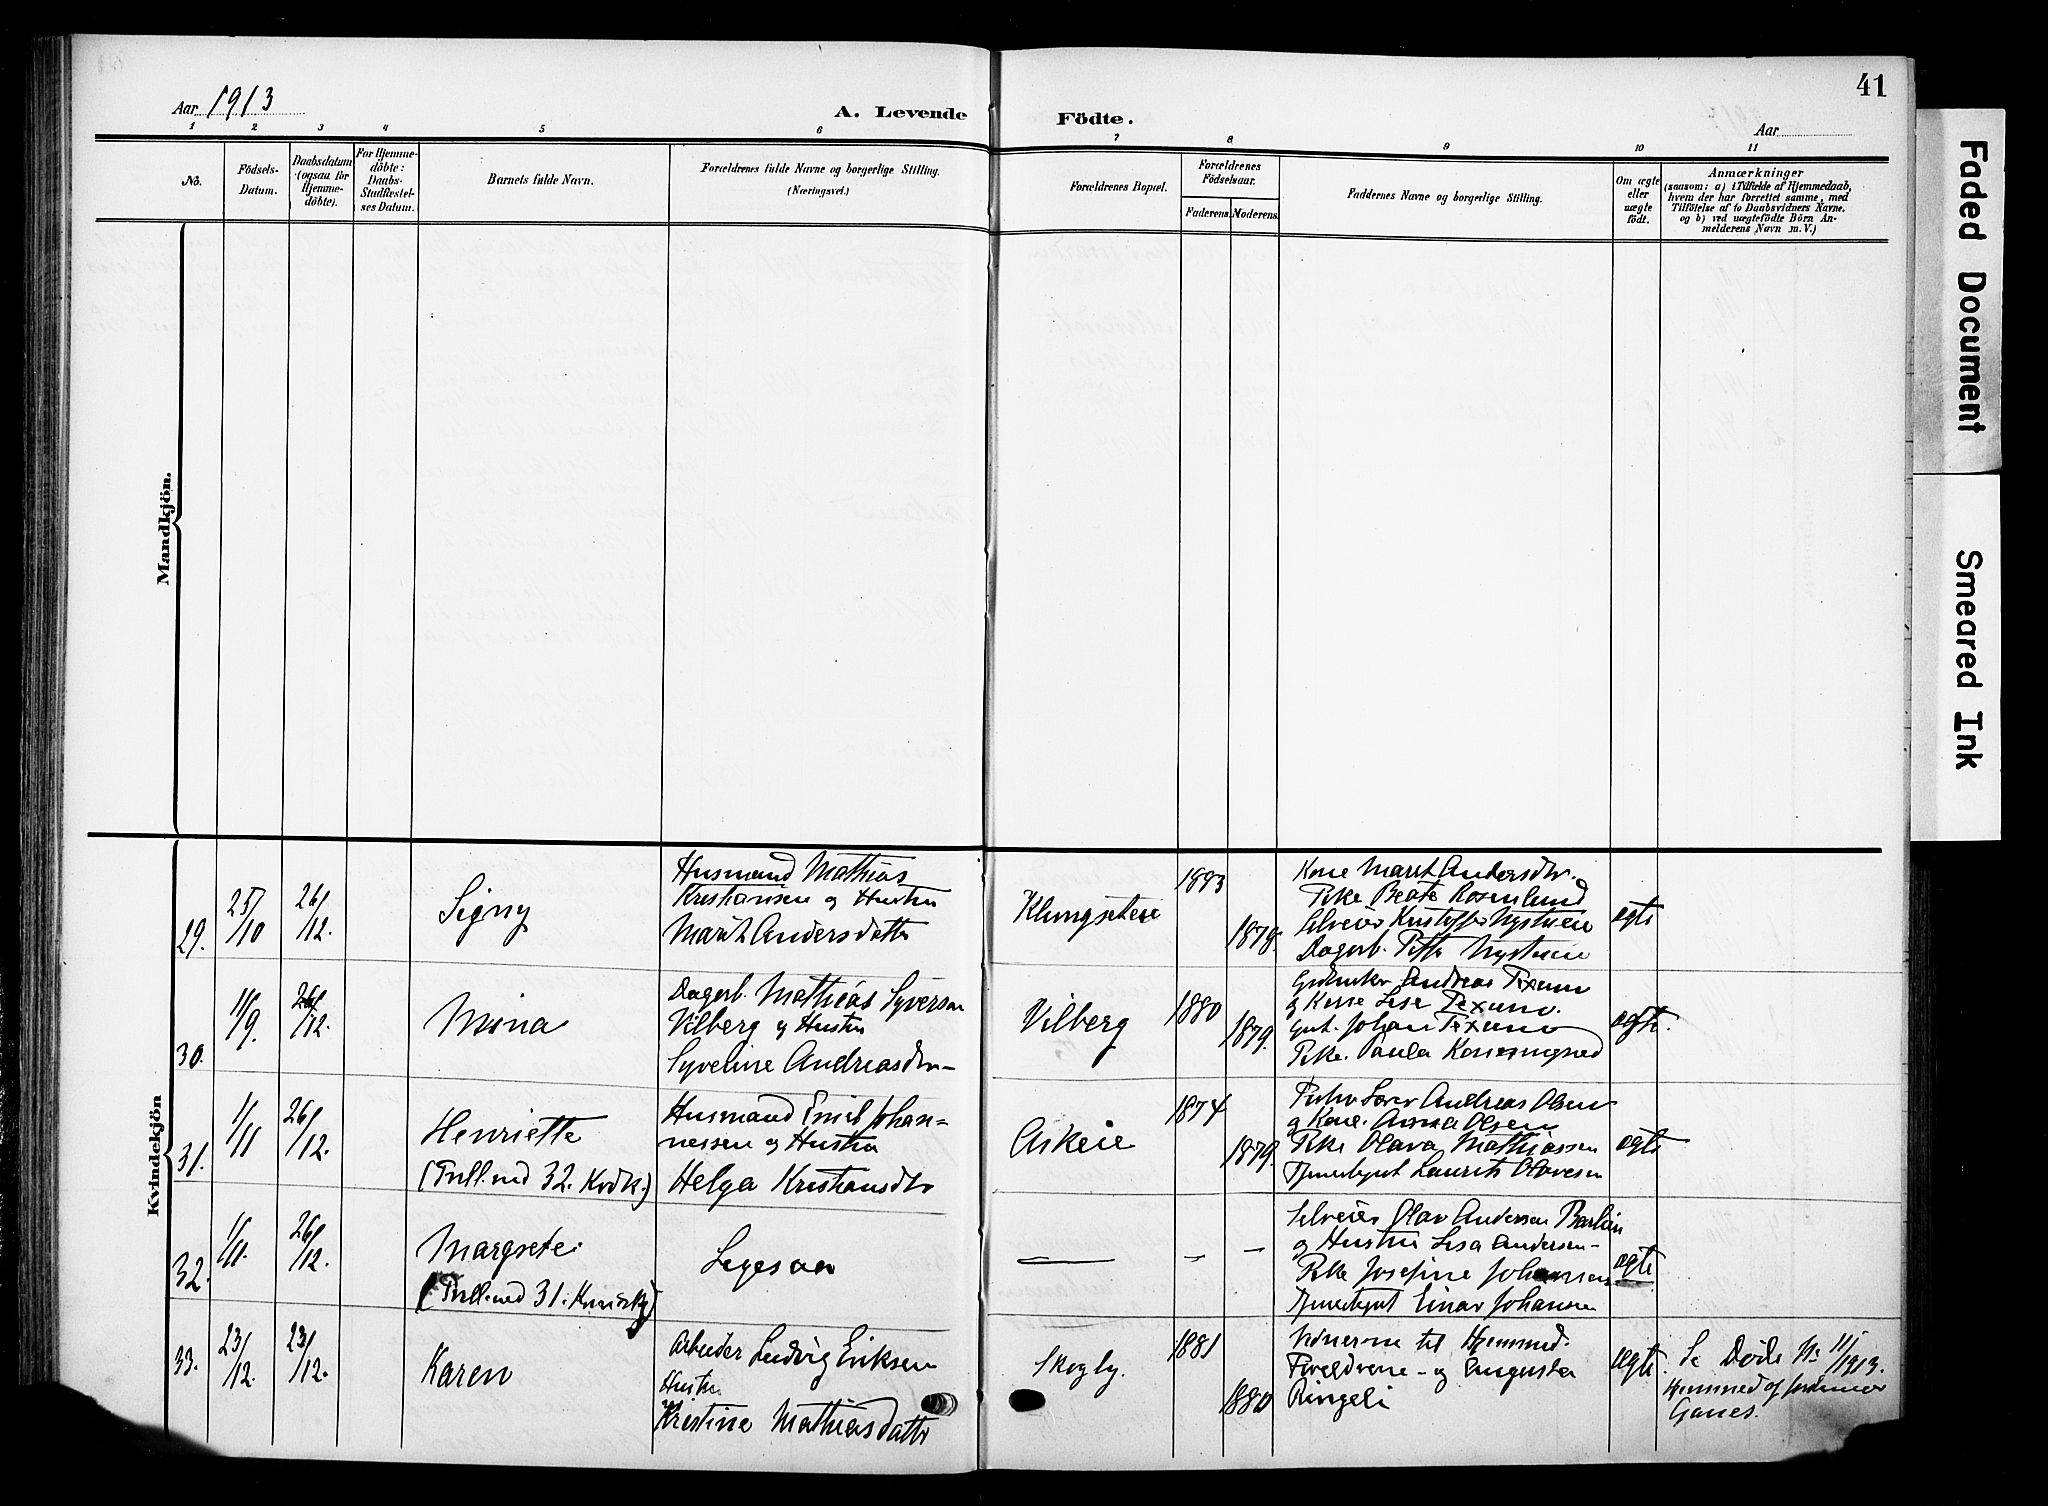 41
Aar 1913
A. Levende Födte.
Aar
1 2 3 4 5 6 7 8 9 10 11
No.
Födsels-
Datum.
Daabsdatum
(ogsaa for
Hjemme-
döbte).
For Hjemme-
döbte:
Daabs-
Stadfæstel-
ses Datum.
Barnets fulde Navn.
Forældrenes fulde Navne og borgerlige Stilling.
(Næringsvei.)
Forældrenes Bopæl.
Forældrenes
Födselsaar.
Faderens.
Moderens.
Faddernes Navne og borgerlige Stilling.
Om ægte
eller
uægte
födt.
Anmærkninger
(saasom: a) i Tilfælde af Hjemmedaab,
hvem der har forrettet samme, med
Tilföielse af to Daabsvidners Navne.
og b) ved uægtefödte Börn An-
melderens Navn m. V.)
Mandkjön.
Kvindekjön
29.
25/10
26/12.
Signy
Husmand Mathias
Kristiansen og Hustru
Marit Andersdatter
Klungseteie
1893
1878.
Kone Marit Andersdtr.
Pike Beate Rosenlund
Selveier Kristoffer Nystuen
Dagarb. Petter Nystuen
ægte
30.
11/9.
26/12.
Mina
Dagarb. Mathias Syversen
Vilberg og Hustru
Syveline Andreasdtr
Vilberg
1880
1879.
Andreas
og Kone Lise
Gut. Johan
Pike. Paula
ægte.
31.
1/11
26/12.
Henriette
(Tvill. med 32. Kvdk.)
Husmand Emil Johan-
nessen og Hustru
Helga Kristiansdtr
Askeie
1874
1879.
Andreas Olsen
og Kone Anna Olsen
Pike Olava Mathiassen
Tjenestegut Laurits Olavesen
ægte
32.
1/11.
26/12.
Margrete
(Tvill. med 31. Kvindekj)
Ligesaa
— - -
Selveier Olav Andersen
og Hustru Lisa Andersen
Pike Josefine Johansen
Tjenestegut Einar Johansen
ægte
33.
23/12.
23/12.
Karen
Arbeider Ludvig Eriksen
Hustru
Kristine Mathiasdatter
Skogly.
1881
1880
Vidnerne til Hjemmed.
Forældrene og Augusta
Ringeli
ægte.
Se Döde No 11/1913.
Hjemmed. af Jordmor
Ganes.
Faded Document
Smeared Ink